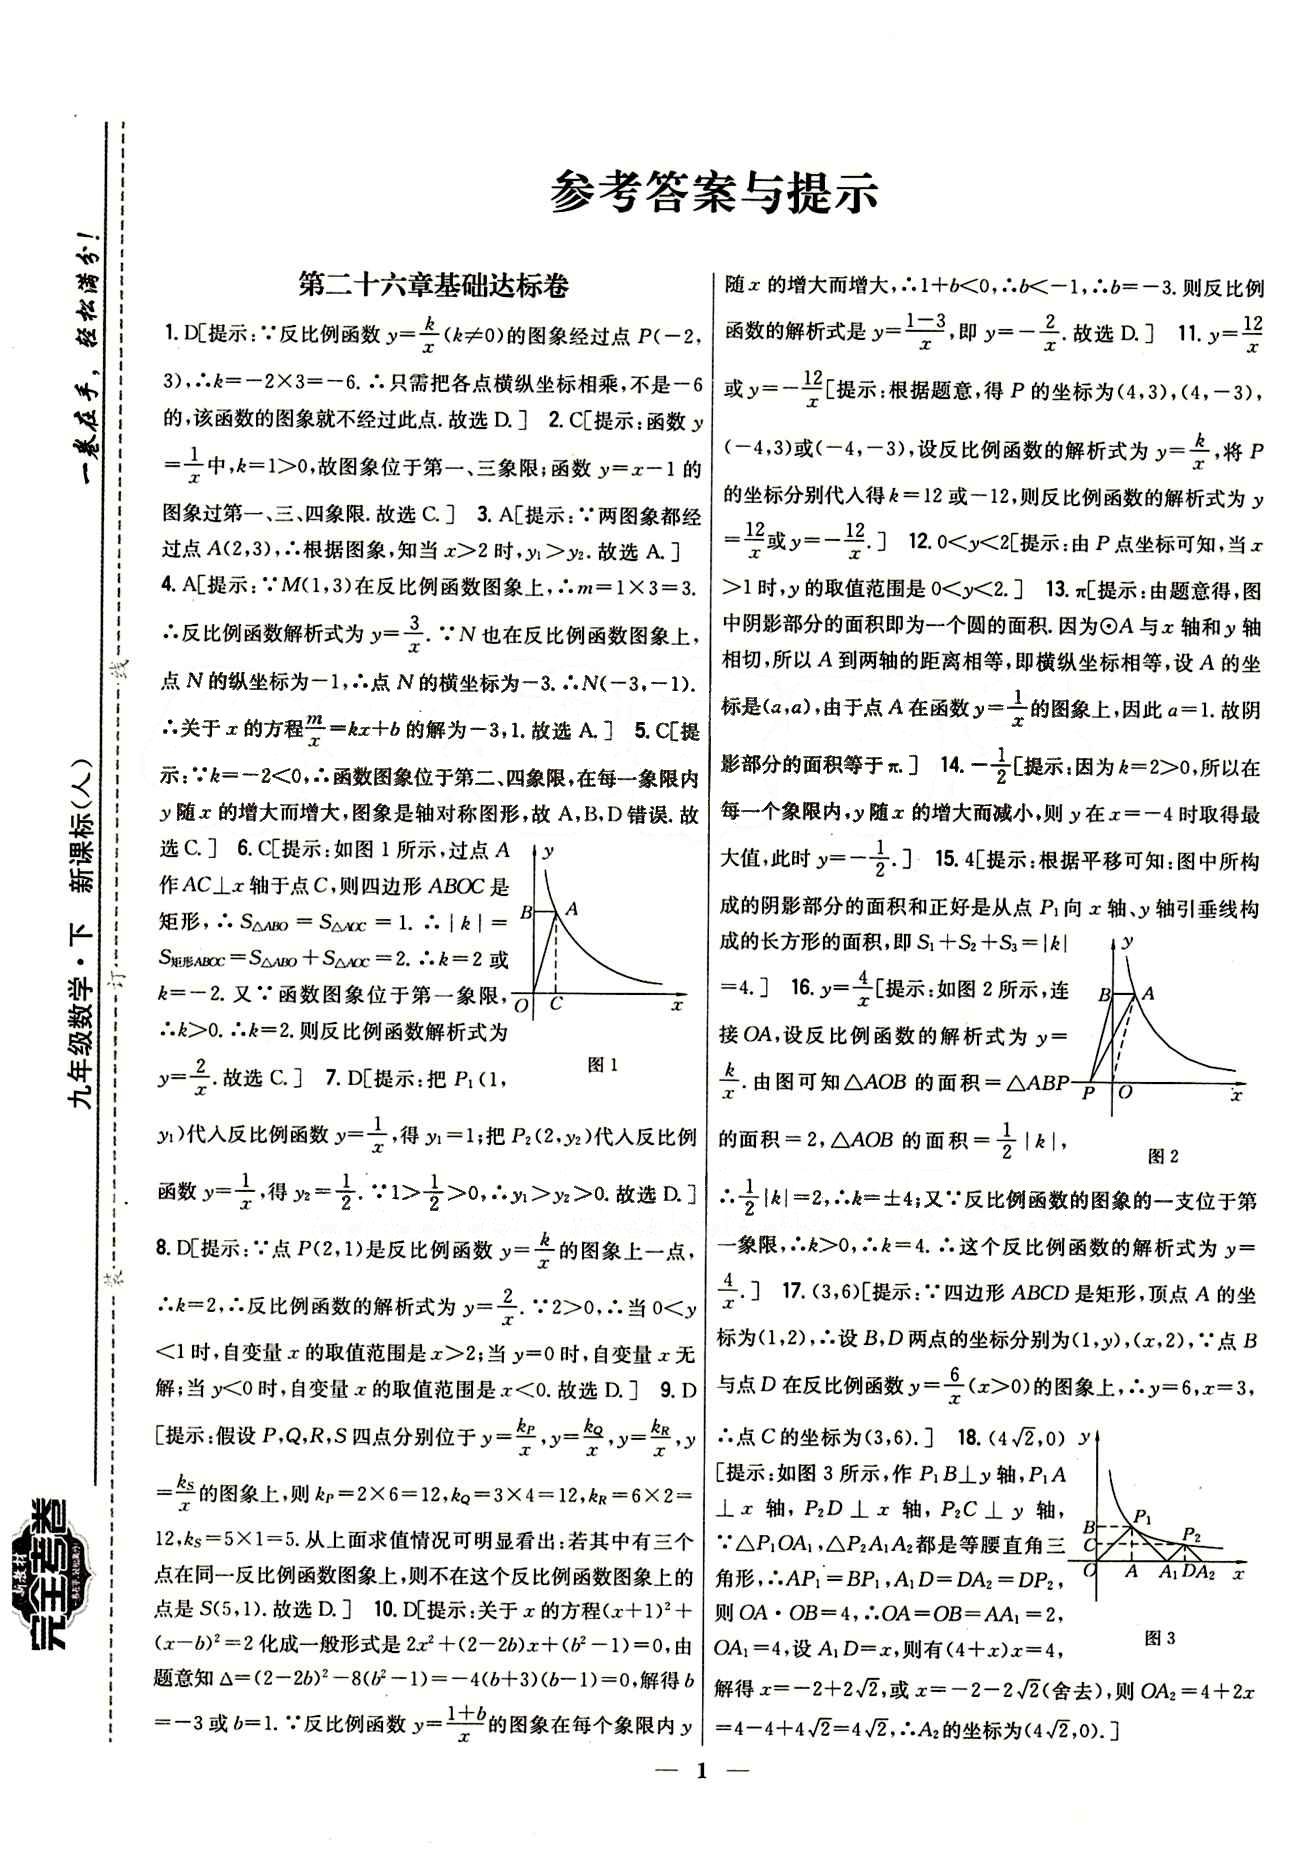 参考答案与提示
第二十六章基础达标卷
1. D[提示:∵反比例函数 y=k/x(k≠0)的图象经过点 P(-2,
3),∴k=-2×3=-6. ∴只需把各点横纵坐标相乘,不是-6
的,该函数的图象就不经过此点.故选 D.] 2. C[提示:函数 y
=1/x中,k=1>0,故图象位于第一、三象限;函数 y=x-1 的
图象过第一、三、四象限.故选 C.] 3. A[提示:∵两图象都经
过点 A(2,3),∴根据图象,知当 x>2 时,y₁>y₂.故选 A.]
4. A[提示:∵M(1,3)在反比例函数图象上,∴m=1×3=3.
∴反比例函数解析式为 y=3/x. ∵N 也在反比例函数图象上,
点 N 的纵坐标为-1,∴点 N 的横坐标为-3.∴N(-3,-1).
∴关于 x 的方程m/x=kx+b 的解为-3,1.故选 A.] 5. C[提
示:∵k=-2<0,∴函数图象位于第二、四象限,在每一象限内
y 随 x 的增大而增大,图象是轴对称图形,故 A,B,D 错误.故
选 C.] 6. C[提示:如图 1 所示,过点 A
作 AC⊥x 轴于点 C,则四边形 ABOC 是
矩形,∴S△ABO=S△AOC=1. ∴|k|=
S矩形ABOC=S△ABO+S△AOC=2. ∴k=2 或
k=-2. 又∵函数图象位于第一象限,
∴k>0.∴k=2.则反比例函数解析式为
y=2/x.故选 C.] 7. D[提示:把 P₁(1,
y
B
A
O
C
x
图 1
y₁)代入反比例函数 y=1/x,得 y₁=1;把 P₂(2,y₂)代入反比例
函数 y=1/x,得 y₂=1/2. ∵1>1/2>0,∴y₁>y₂>0.故选 D.]
8. D[提示:∵点 P(2,1)是反比例函数 y=k/x的图象上一点,
∴k=2,∴反比例函数的解析式为 y=2/x. ∵2>0,∴当 0<y
<1 时,自变量 x 的取值范围是 x>2;当 y=0 时,自变量 x 无
解;当 y<0 时,自变量 x 的取值范围是 x<0.故选 D.] 9. D
[提示:假设 P,Q,R,S 四点分别位于 y=kP/x,y=kQ/x,y=kR/x,y
=kS/x的图象上,则 kP=2×6=12,kQ=3×4=12,kR=6×2=
12,kS=5×1=5.从上面求值情况可明显看出:若其中有三个
点在同一反比例函数图象上,则不在这个反比例函数图象上的
点是 S(5,1).故选 D.] 10. D[提示:关于 x 的方程(x+1)²+
(x-b)²=2 化成一般形式是 2x²+(2-2b)x+(b²-1)=0,由
题意知 Δ=(2-2b)²-8(b²-1)=-4(b+3)(b-1)=0,解得 b
=-3 或 b=1. ∵反比例函数 y=1+b/x的图象在每个象限内 y
随 x 的增大而增大,∴1+b<0,∴b<-1,∴b=-3.则反比例
函数的解析式是 y=1-3/x,即 y=-2/x.故选 D.] 11. y=12/x
或 y=-12/x[提示:根据题意,得 P 的坐标为(4,3),(4,-3),
(-4,3)或(-4,-3),设反比例函数的解析式为 y=k/x,将 P
的坐标分别代入得 k=12 或-12,则反比例函数的解析式为 y
=12/x或 y=-12/x.] 12. 0<y<2[提示:由 P 点坐标可知,当 x
>1 时,y 的取值范围是 0<y<2.] 13. π[提示:由题意得,图
中阴影部分的面积即为一个圆的面积.因为⊙A 与 x 轴和 y 轴
相切,所以 A 到两轴的距离相等,即横纵坐标相等,设 A 的坐
标是(a,a),由于点 A 在函数 y=1/x的图象上,因此 a=1.故阴
影部分的面积等于 π.] 14. -1/2[提示:因为 k=2>0,所以在
每一个象限内,y 随 x 的增大而减小,则 y 在 x=-4 时取得最
大值,此时 y=-1/2.] 15. 4[提示:根据平移可知:图中所构
成的阴影部分的面积和正好是从点 P₁向 x 轴、y 轴引垂线构
成的长方形的面积,即 S₁+S₂+S₃=|k|
=4.] 16. y=4/x[提示:如图 2 所示,连
接 OA,设反比例函数的解析式为 y=
k/x.由图可知△AOB 的面积=△ABP
的面积=2,△AOB 的面积=1/2|k|,
y
B
A
P
O
x
图 2
∴1/2|k|=2,∴k=±4;又∵反比例函数的图象的一支位于第
一象限,∴k>0,∴k=4. ∴这个反比例函数的解析式为 y=
4/x.] 17. (3,6)[提示:∵四边形 ABCD 是矩形,顶点 A 的坐
标为(1,2),∴设 B,D 两点的坐标分别为(1,y),(x,2),∵点 B
与点 D 在反比例函数 y=6/x(x>0)的图象上,∴y=6,x=3,
∴点 C 的坐标为(3,6).] 18. (4√2,0)
[提示:如图 3 所示,作 P₁B⊥y 轴,P₁A
⊥x 轴,P₂D⊥x 轴,P₂C⊥y 轴,
∵△P₁OA₁,△P₂A₁A₂都是等腰直角三
角形,∴AP₁=BP₁,A₁D=DA₂=DP₂,
则 OA·OB=4,∴OA=OB=AA₁=2,
OA₁=4,设 A₁D=x,则有(4+x)x=4,
y
B
P₁
C
P₂
O
A
A₁
D
A₂
x
图 3
解得 x=-2+2√2,或 x=-2-2√2(舍去),则 OA₂=4+2x
=4-4+4√2=4√2,∴A₂的坐标为(4√2,0).]
— 1 —
一卷在手,轻松满分!
九年级数学·下 新课标(人)
线
订
装
新教材
完全考卷